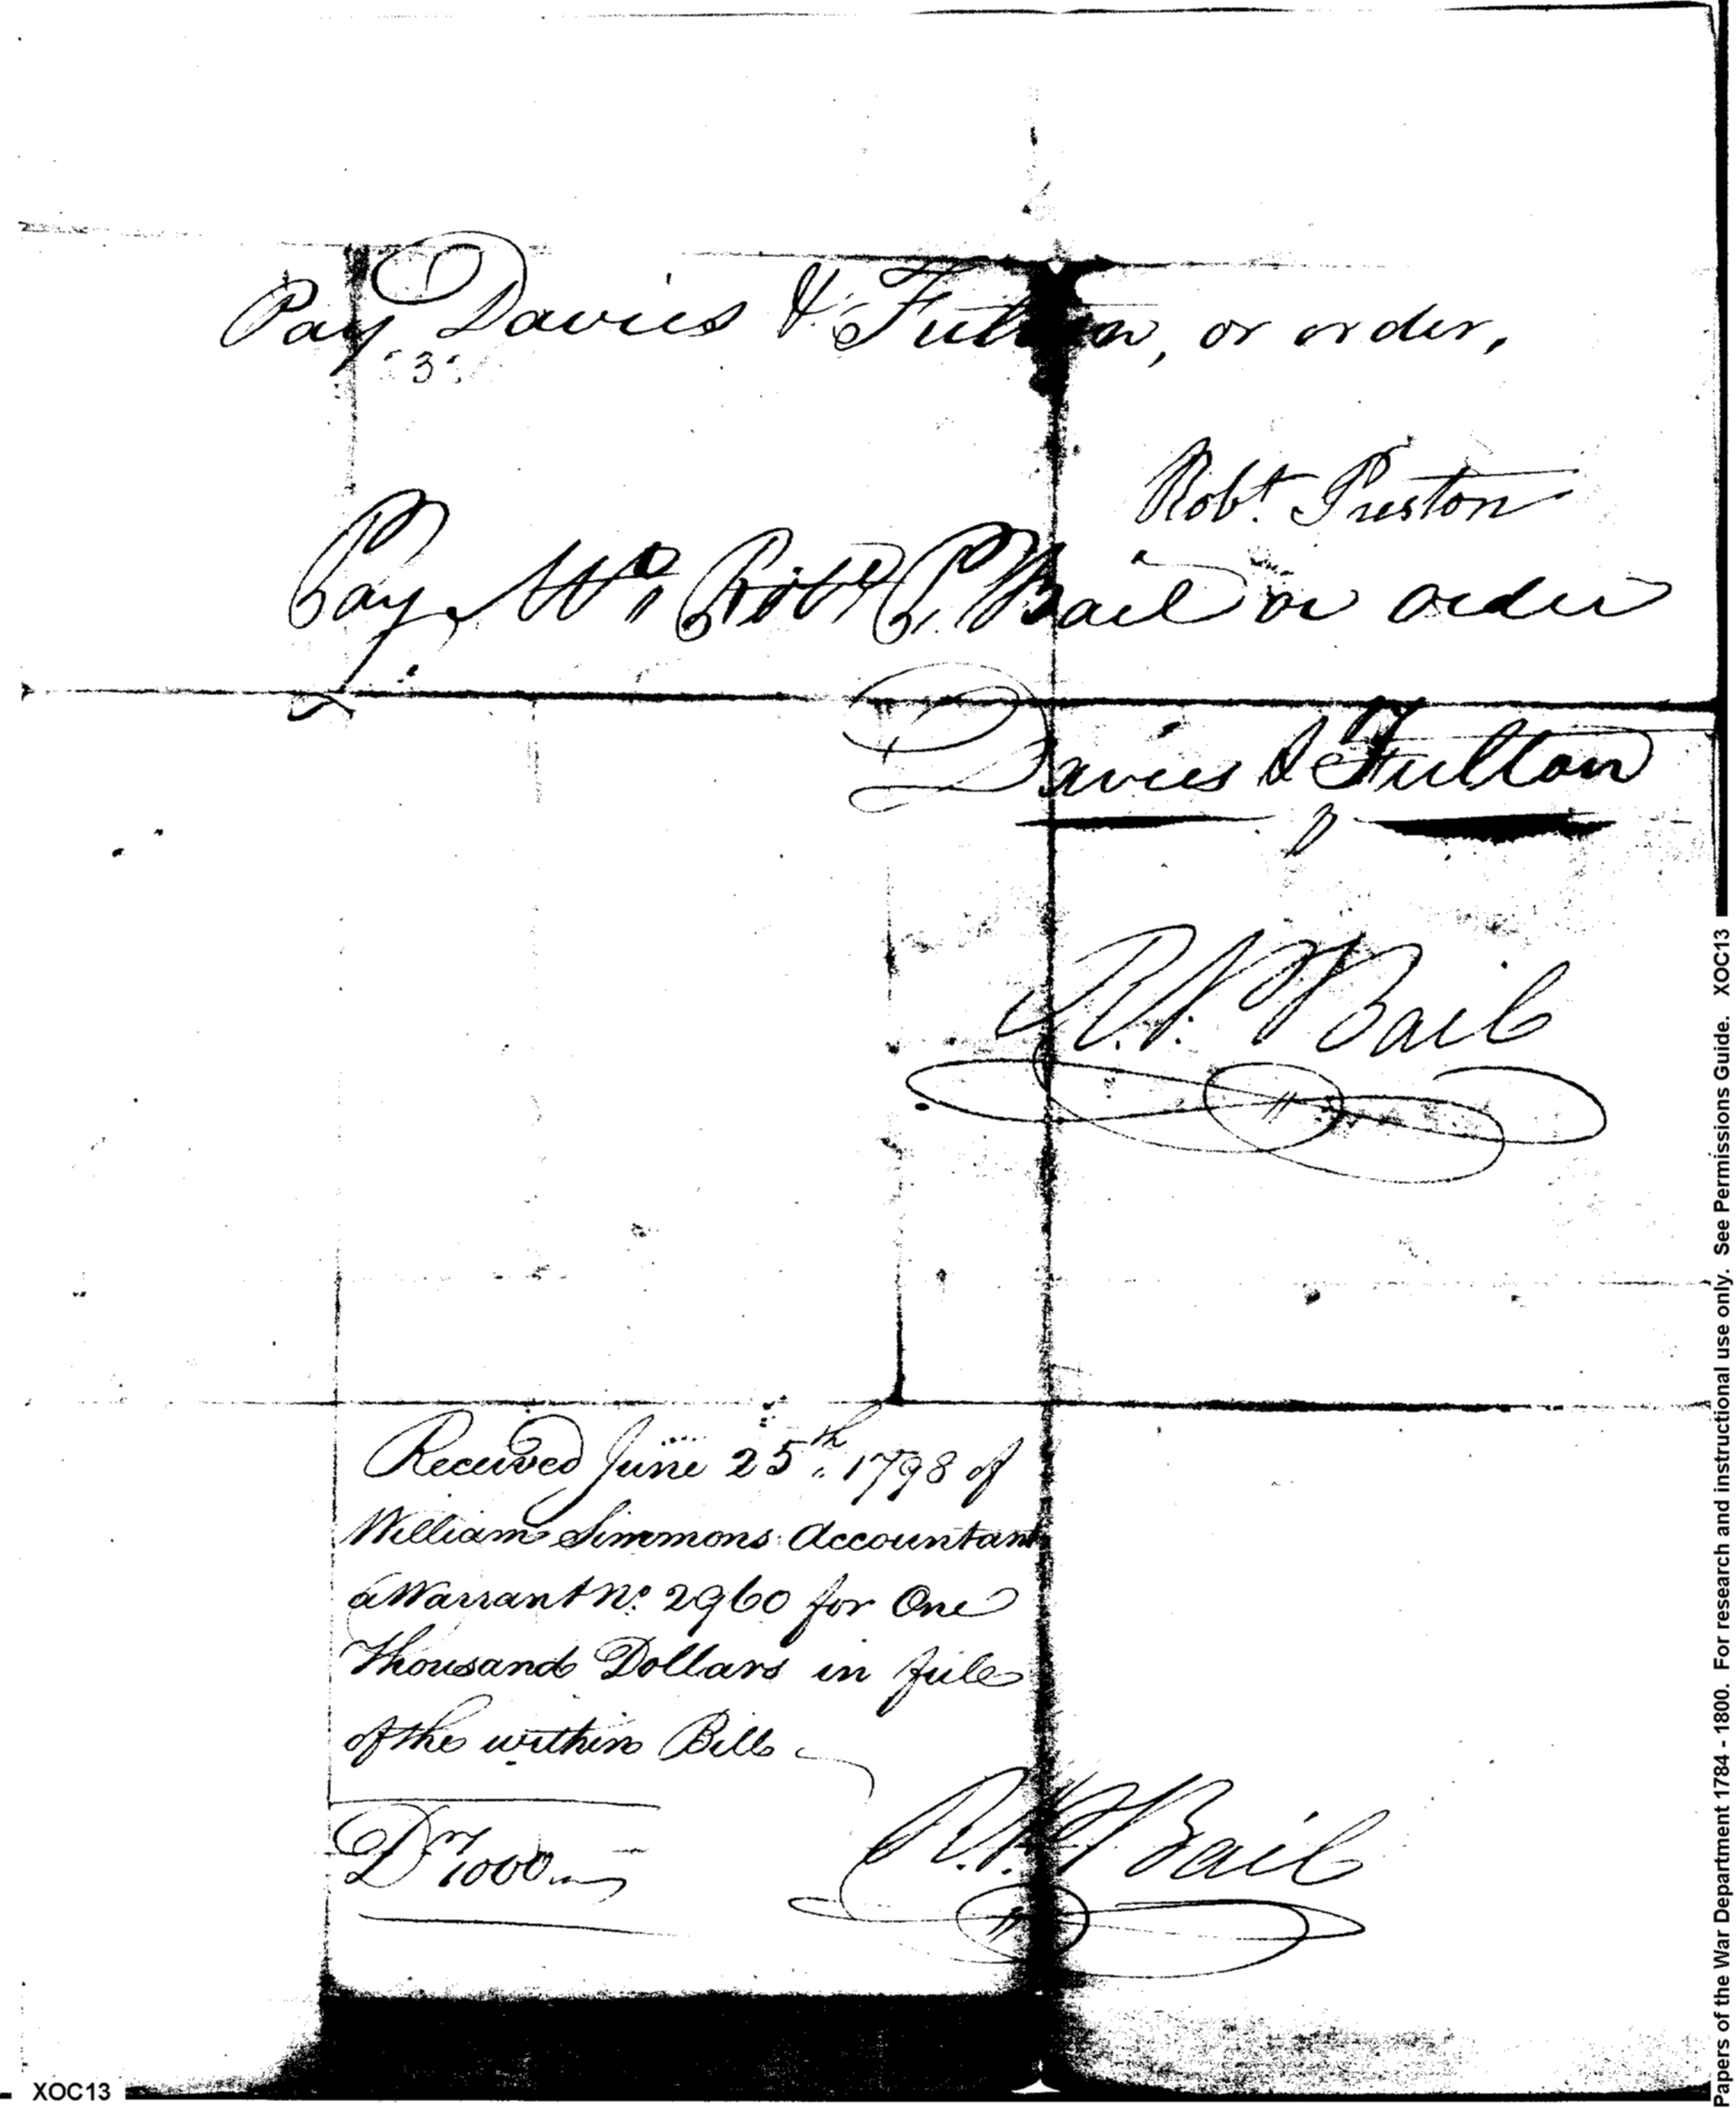 Pay Davies & Fulton, or order,
"3"
Robt. Preston
Pay Mr. Robt. P. Bail or order
Davies & Fulton
R. P. Bail
Received June 25th. 1798 of
William Simmons Accountant
a Warrant No. 2960 for One
Thousand Dollars in full
of the within Bill
Drs 1000
R. P. Bail
XOC13
Papers of the War Department 1784 - 1800. For research and instructional use only. See Permissions Guide. XOC13